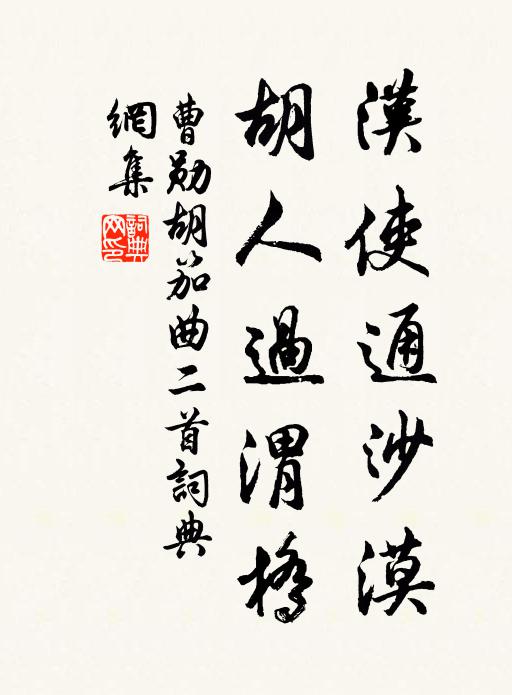 漢使通沙漠
胡人過渭橋
曹勛胡笳曲二首詞典
網集
詞典
網印